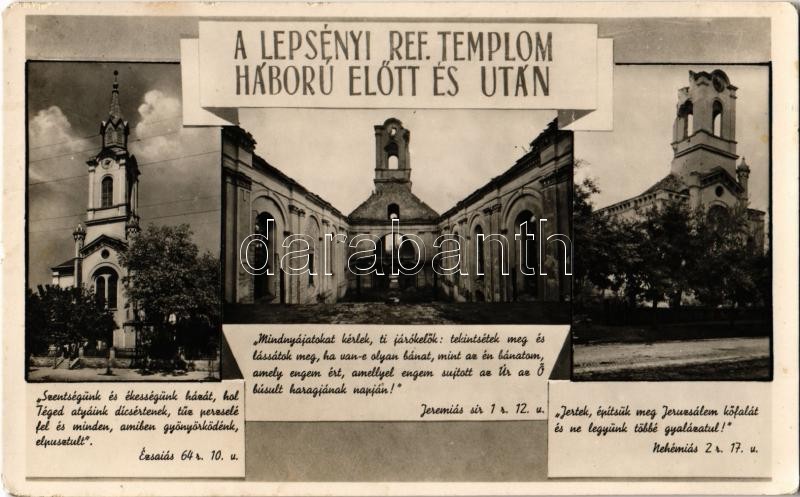 A LEPSÉNYI REF. TEMPLOM
HÁBORÚ ELŐTT ÉS UTÁN
darabanth
„Szentségünk és ékességünk házát, hol
Téged atyáink dicsértenek, tűz perzselé
fel és minden, amiben gyönyörködénk,
elpusztult".
Ézsaiás 64 r. 10. v.
„Mindnyájatokat kérlek, ti járókelők: tekintsétek meg és
lássátok meg, ha van-e olyan bánat, mint az én bánatom,
amely engem ért, amellyel engem sujtott az Úr az Ő
búsult haragjának napján!"
Jeremiás sir 1 r. 12. v.
„Jertek, építsük meg Jeruzsálem kőfalát
és ne legyünk többé gyalázatul!"
Nehémiás 2 r. 17. v.